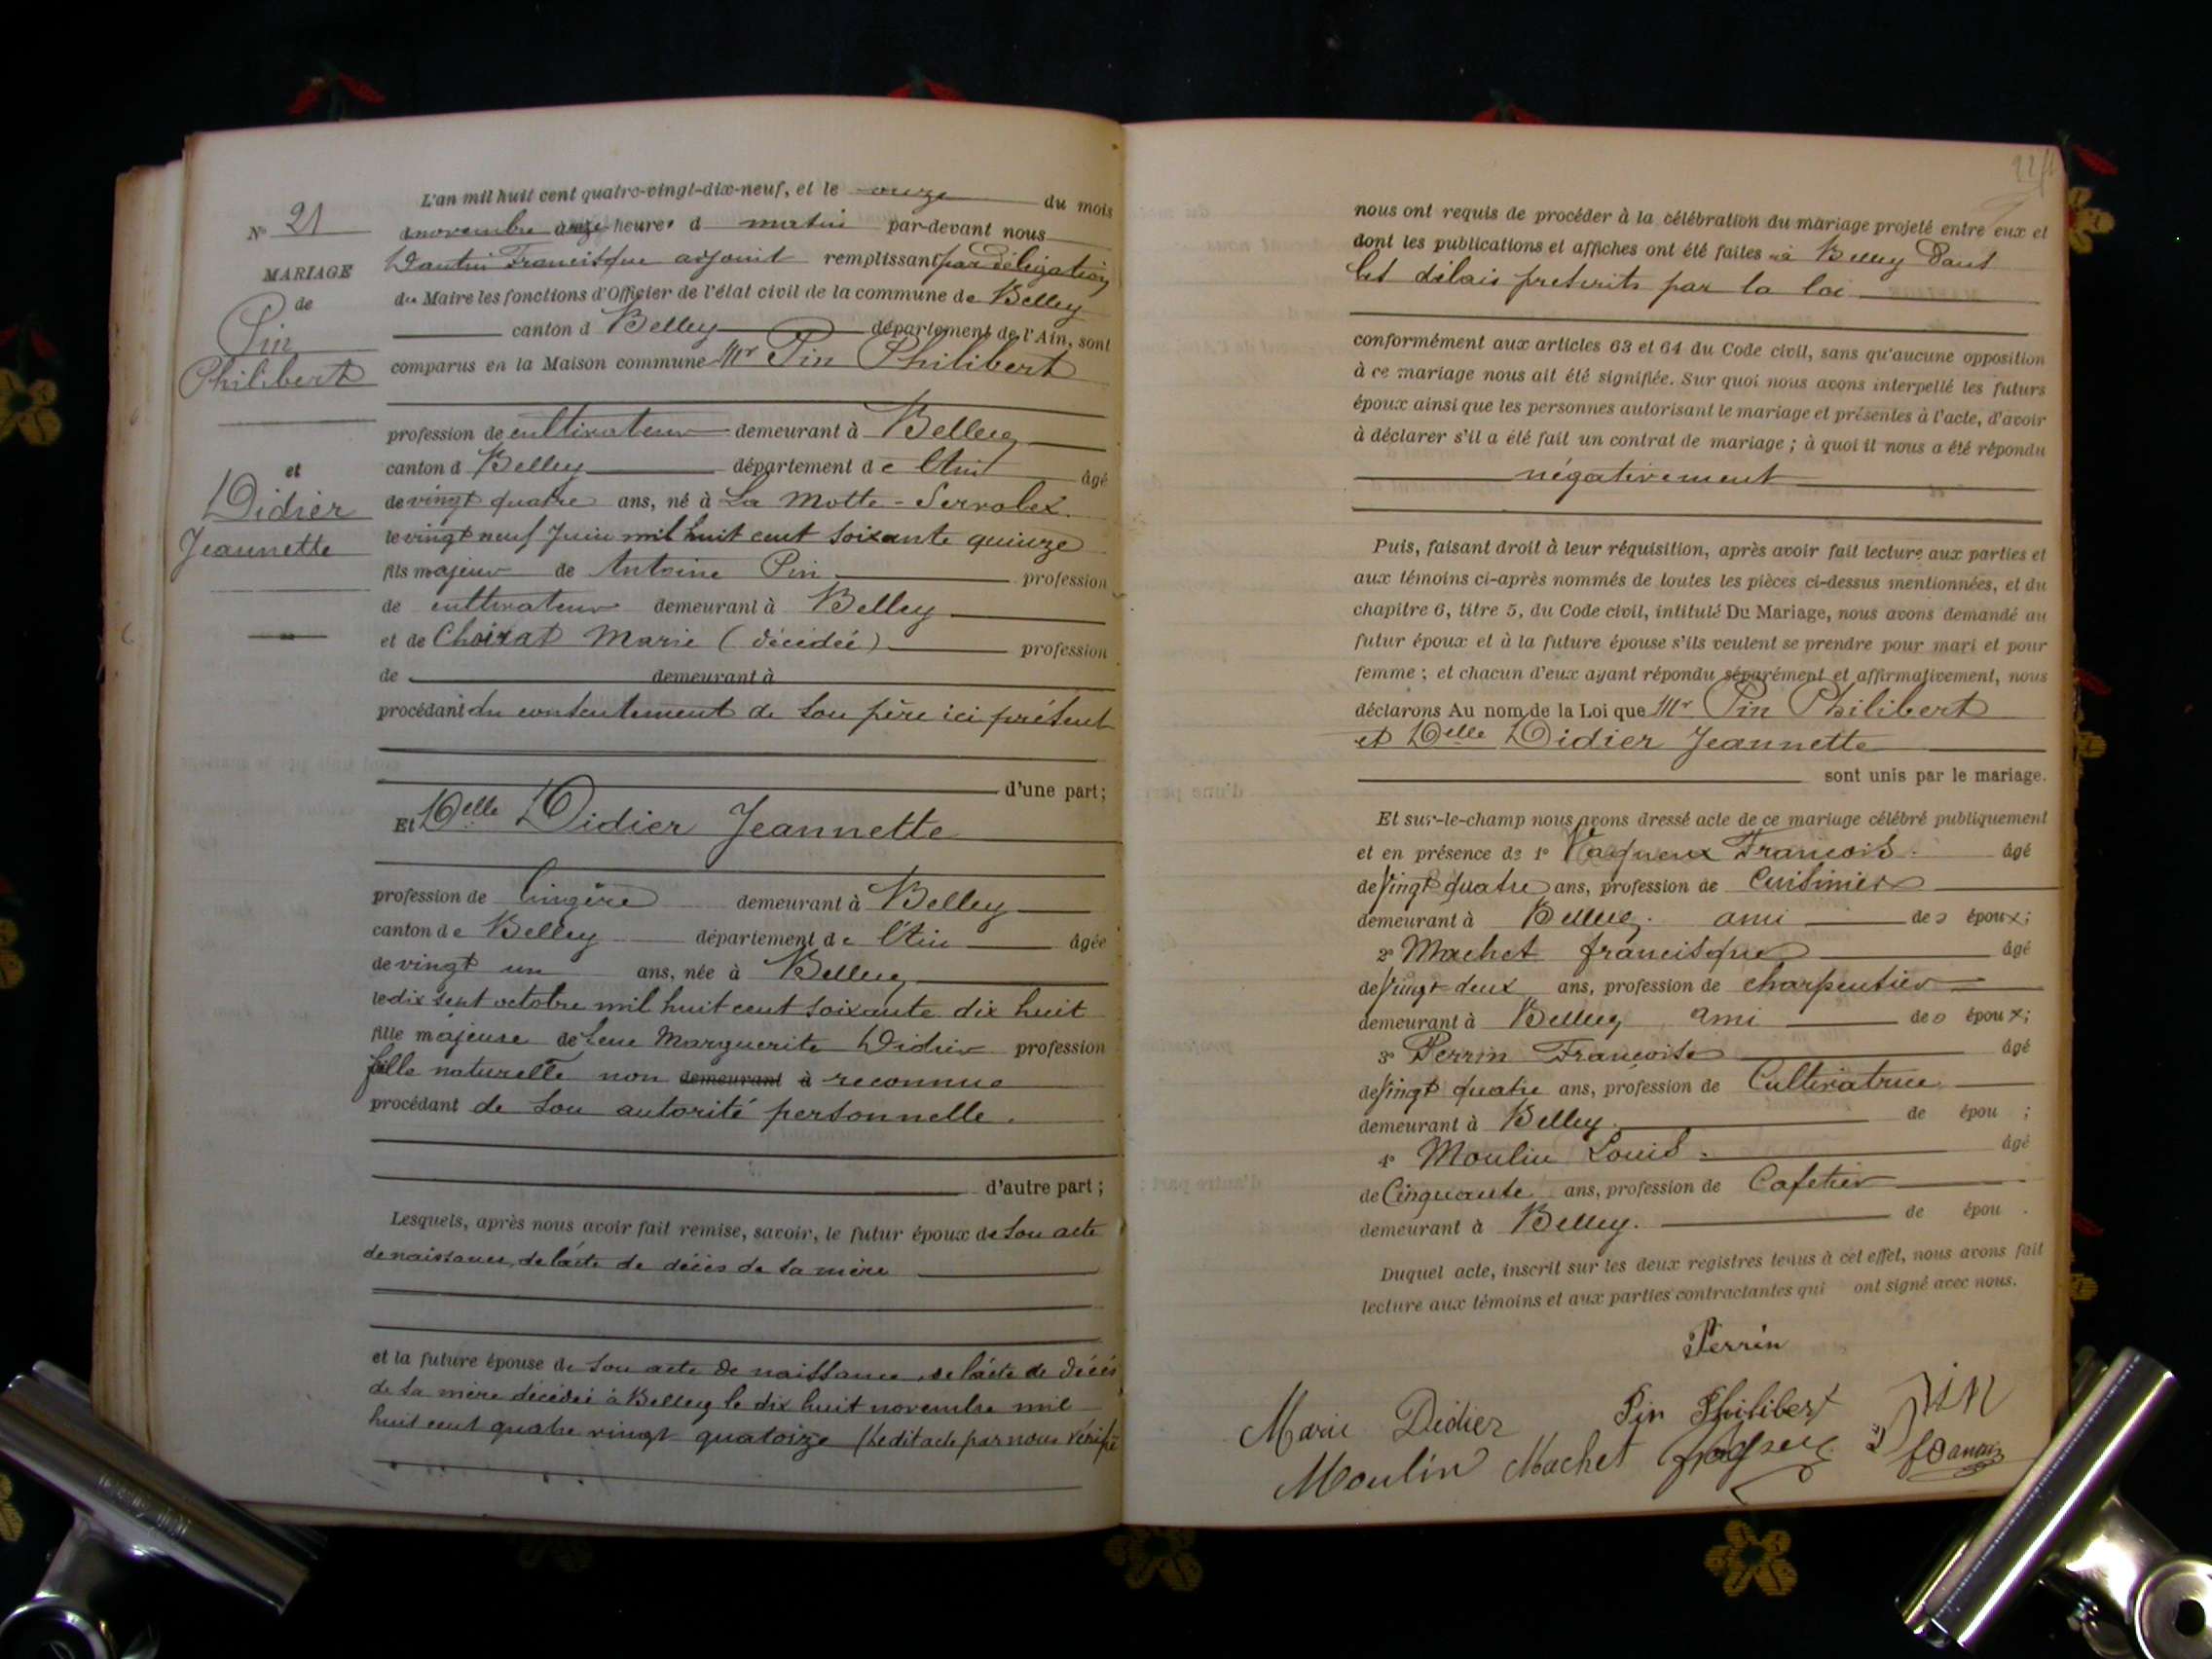 N° 21
MARIAGE
de
Pin
Philibert
et
Didier
Jeannette
L'an mil huit cent quatre-vingt-dix-neuf, et le onze du mois
novembre à onze heures d matin par-devant nous
Dantin Francisque adjoint remplissant par délégation
du Maire les fonctions d'Officier de l'état civil de la commune de Belley
canton d Belley département de l'Ain, sont
comparus en la Maison commune Mr Pin Philibert
profession de cultivateur demeurant à Belley
canton d Belley département de l'Ain âgé
de vingt quatre ans, né à La Motte-Servolex
le vingt neuf Juin mil huit cent soixante quinze
fils majeur de Antoine Pin profession
de cultivateur demeurant à Belley
et de Choirat Marie (décédée) profession
de demeurant à
procédant du consentement de son père ici présent
d'une part;
Et Delle Didier Jeannette
profession de lingère demeurant à Belley
canton de Belley département de l'Ain âgée
de vingt un ans, née à Belley
le dix sept octobre mil huit cent soixante dix huit
fille majeure de feue Marguerite Didier profession
fille naturelle non demeurant à reconnue
procédant de son autorité personnelle.
d'autre part;
Lesquels, après nous avoir fait remise, savoir, le futur époux de son acte
de naissance, de l'acte de décès de sa mère
et la future épouse de son acte de naissance de l'acte de décès
de sa mère décédée à Belley le dix huit novembre mil
huit cent quatre vingt quatorze (ledit acte par nous vérifié
224
nous ont requis de procéder à la célébration du mariage projeté entre eux et
dont les publications et affiches ont été faites à Belley dans
les délais prescrits par la loi
conformément aux articles 63 et 64 du Code civil, sans qu'aucune opposition
à ce mariage nous ait été signifiée. Sur quoi nous avons interpellé les futurs
époux ainsi que les personnes autorisant le mariage et présentes à l'acte, d'avoir
à déclarer s'il a été fait un contrat de mariage; à quoi il nous a été répondu
négativement
Puis, faisant droit à leur réquisition, après avoir fait lecture aux parties et
aux témoins ci-après nommés de toutes les pièces ci-dessus mentionnées, et du
chapitre 6, titre 5, du Code civil, intitulé Du Mariage, nous avons demandé au
futur époux et à la future épouse s'ils veulent se prendre pour mari et pour
femme; et chacun d'eux ayant répondu séparément et affirmativement, nous
déclarons Au nom de la Loi que Mr Pin Philibert
et Delle Didier Jeannette
sont unis par le mariage.
Et sur-le-champ nous avons dressé acte de ce mariage célébré publiquement
et en présence de 1° Vaqueux Francois. âgé
de Vingt quatre ans, profession de Cuisinier
demeurant à Belley. ami des époux;
2° Machet francisque âgé
de Vingt deux ans, profession de charpentier
demeurant à Belley ami des époux;
3° Perrin Francoise âgé
de Vingt quatre ans, profession de Cultivatrice
demeurant à Belley. de épou ;
4° Moulin Louis. âgé
de Cinquante ans, profession de Cafetier
demeurant à Belley. de épou .
Duquel acte, inscrit sur les deux registres tenus à cet effet, nous avons fait
lecture aux témoins et aux parties contractantes qui ont signé avec nous.
Perrin
Marie Didier Pin Philibert Pin
Moulin Machet